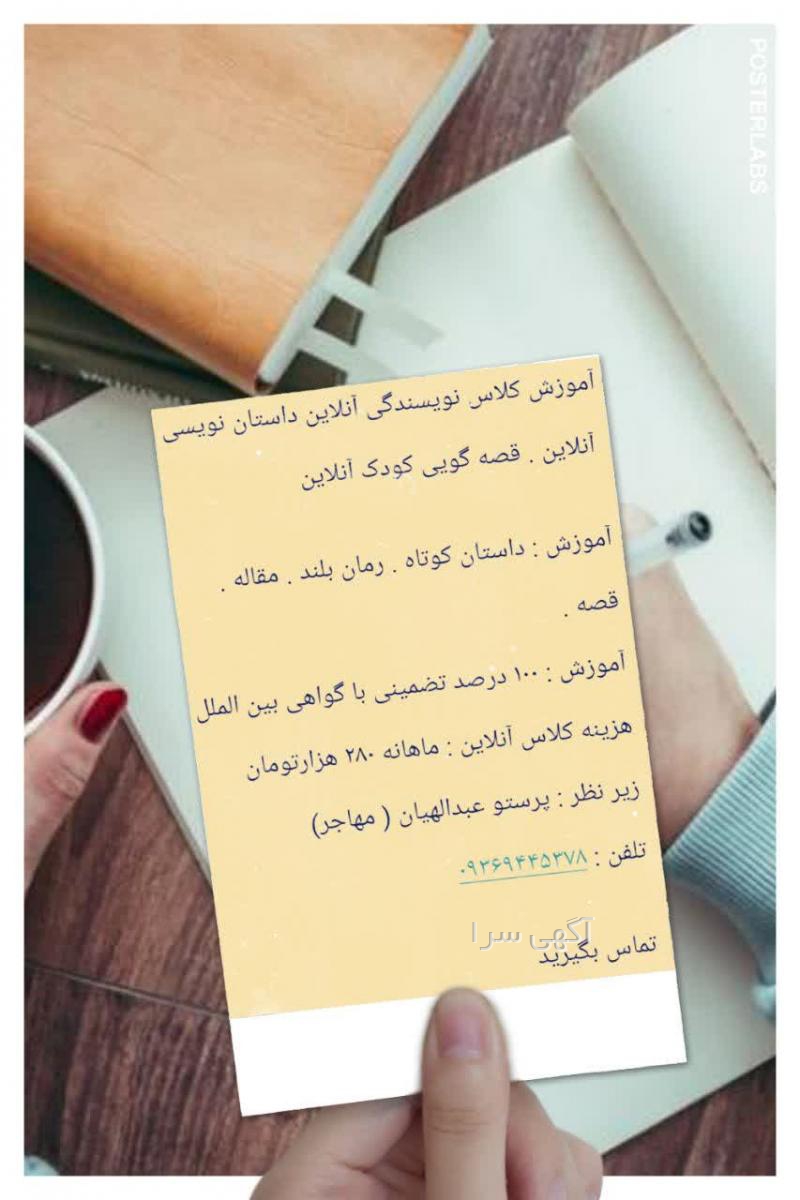 POSTERLABS
آموزش کلاس نویسندگی آنلاین داستان نویسی
آنلاین . قصه گویی کودک آنلاین
آموزش : داستان کوتاه . رمان بلند . مقاله .
قصه .
آموزش : ۱۰۰ درصد تضمینی با گواهی بین الملل
هزینه کلاس آنلاین : ماهانه ۲۸۰ هزارتومان
زیر نظر : پرستو عبدالهیان ( مهاجر)
تلفن : ۰۹۳۶۹۴۴۵۳۷۸
آگهی سرا
تماس بگیرید